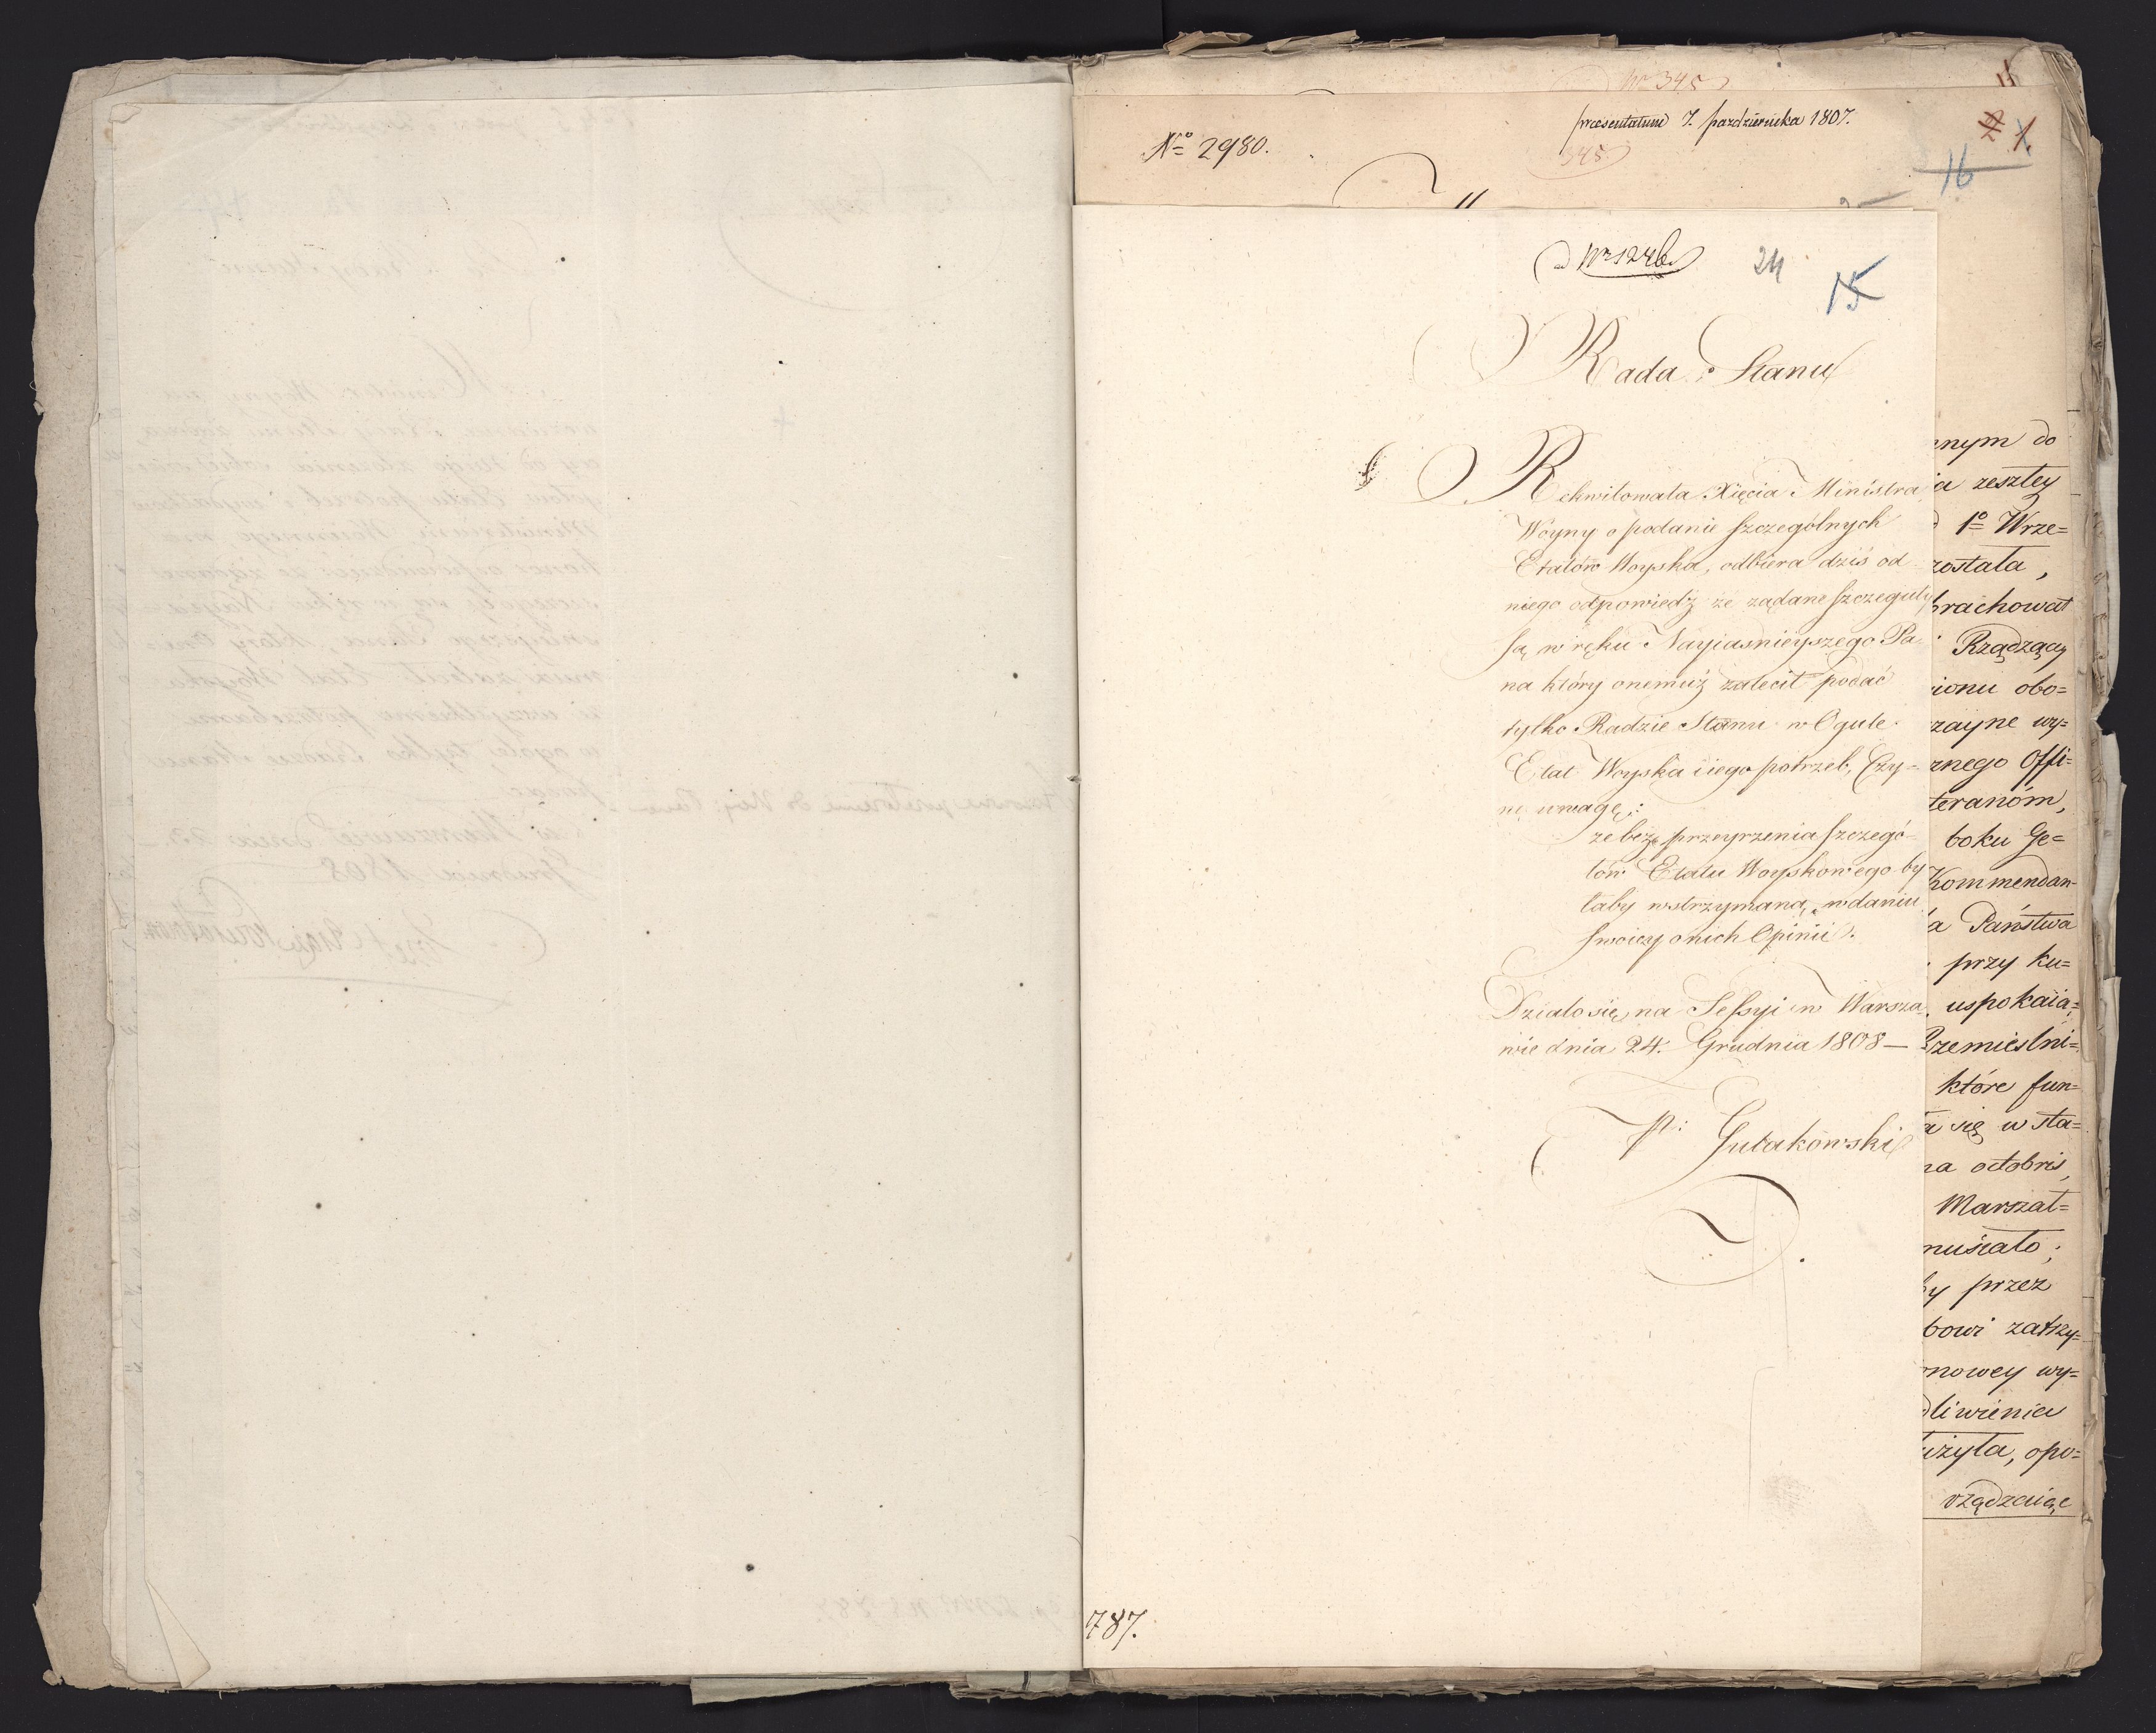 Nro 345
11
No 2980.
præsentatum 7. pazdziernika 1807.
345
1.
16
ad Nro 1246
24
15
Rada Stanu
Rekwilowała Xięcia Ministra
Woyny o podanie szczególnych
Etatów Woyska, odbiera dziś od
niego odpowiedź że żądane szczeguły
są w ręku Nayiaśnieyszego Pa-
na który onemuż zalecił podać
tylko Radzie Stanu w Ogule
Etat Woyska i iego potrzeb, Czy-
ni uwagę:
że bez przeyrzenia szczegó-
łów Etatu Woyskowego by
łaby wstrzymaną w daniu
swoiey onich Opinii.
Działo się na Sessyi w Warsza-
wie dnia 24. Grudnia 1808 —
Gutakowski
787.
nnym do
ia zeszłey
1o Wrze=
została,
brachował
Rządzący
ionu obo=
zayne wy=
znego Offi=
teranóm,
boku Ge=
Kommendan-
a Państwa
przy ku=
uspokaia=
Rzemieslni=
które fun=
a się w sta=
na octobris,
Marszał=
musiało;
by przez
bowi zatrzy=
mowey wy=
dliwienia
użyła, opo=
rządzaiąc